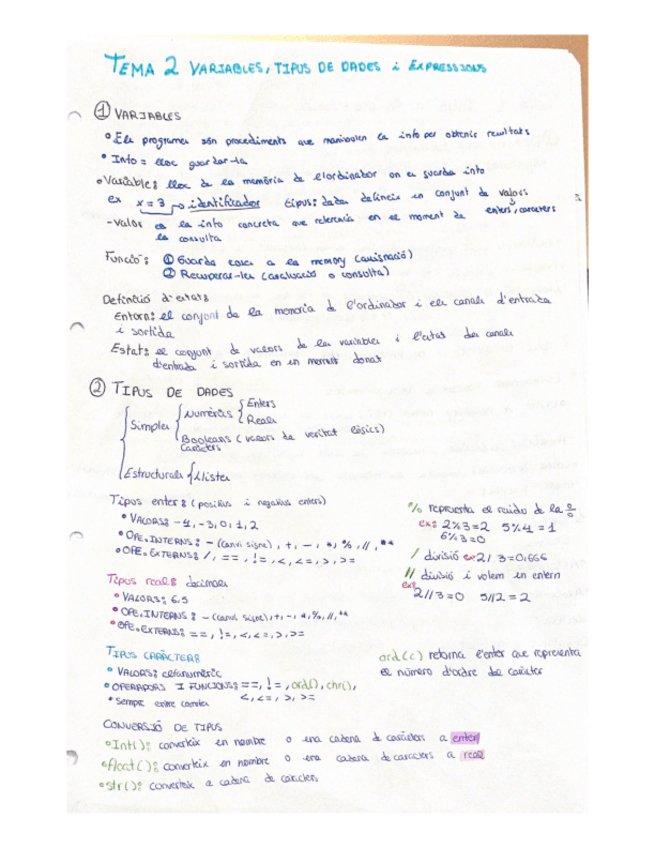 TEMA 2 VARIABLES, TIPUS DE DADES i EXPRESSIONS
① VARIABLES
Els programes són procediments que manipulen la info per obtenir resultats
Info = lloc guardar-la
Variable: lloc de la memòria de l'ordinador on es guarda info
ex x = 3 → identificador tipus: dada defineix un conjunt de valors
enters, caracters
- valor es la info concreta que referencia en el moment de
la consulta
Funció: ① Guarda coses a la memory (assignació)
② Recuperar-les (avaluació o consulta)
Definició d'estat:
Entorn: el conjunt de la memoria de l'ordinador i els canals d'entrada
i sortida
Estat: el conjunt de valors de les variables i l'estat dels canals
d'entrada i sortida en un moment donat
② TIPUS DE DADES
Simples
Numèrics
Enters
Reals
Booleans (valors de veritat lògics)
Caràcters
Estructurals
Llistes
Tipus enters (positius i negatius enters)
VALORS: -4, -3, 0, 1, 2
OPE. INTERNS: - (canvi signe), +, -, *, %, //, **
OPE. EXTERNS: /, ==, !=, <, <=, >, >=
% representa el residu de la
exs 2%3=2 5%4=1
6%3=0
/ divisió ex 2/3=0,666
// divisió i volem un enter
exs
2//3=0 5//2=2
Tipus reals: decimals
VALORS: 6.5
OPE. INTERNS: - (canvi signe), +, -, *, %, //, **
OPE. EXTERNS: ==, !=, <, <=, >, >=
TIPUS CARÀCTERS
VALORS: alfanumèric
OPERADORS I FUNCIONS: ==, !=, ord(), chr(),
<, <=, >, >=
Sempre entre cometes
ord(c) retorna l'enter que representa
el número d'ordre del caràcter
CONVERSIÓ DE TIPUS
Int(): converteix un nombre o una cadena de caràcters a enter
float(): converteix un nombre o una cadena de caracters a real
str(): converteix a cadena de caràcters